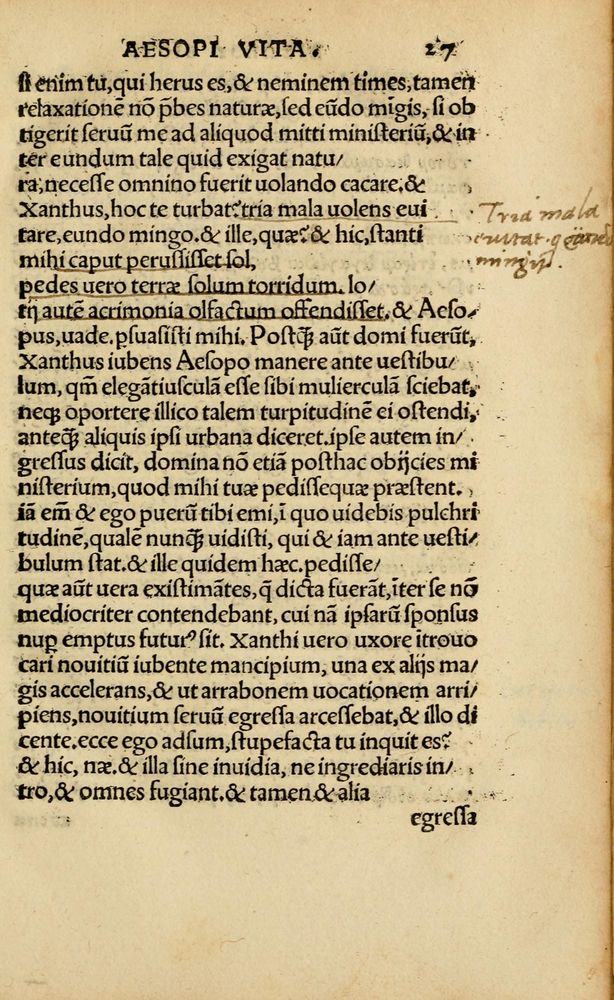 AESOPI VITA. 27
si enim tu, qui herus es, & neminem times, tamen
relaxationē nō p̄bes naturæ, sed eūdo mīgis, si ob
tigerit seruū me ad aliquod mitti ministeriū, & in
ter eundum tale quid exigat natu/
ra, necesse omnino fuerit uolando cacare. &
Xanthus, hoc te turbat? tria mala uolens eui
tare, eundo mingo. & ille, quæ? & hic, stanti
mihi caput perussisset sol,
pedes uero terræ solum torridum. lo/
tij autē acrimonia olfactum offendisset. & Aeso/
pus, uade. ꝑsuasisti mihi. Postꝗ̃ aūt domi fuerūt,
Xanthus iubens Aesopo manere ante uestibu/
lum, qm̄ elegātiusculā esse sibi mulierculā sciebat,
neqꝫ oportere illico talem turpitudinē ei ostendi,
anteꝗ̃ aliquis ipsi urbana diceret. ipse autem in/
gressus dicit, domina nō etiā posthac obijcies mi
nisterium, quod mihi tuæ pedissequæ præstent.
iā em̄ & ego puerū tibi emi, ī quo uidebis pulchri
tudinē, qualē nunꝗ̃ uidisti, qui & iam ante uesti/
bulum stat. & ille quidem hæc. pedisse/
quæ aūt uera existimātes, q̄ dicta fuerāt, īter se nō
mediocriter contendebant, cui nā ipsarū sponsus
nuꝑ emptus futurꝰ sit. Xanthi uero uxore ītrouo
cari nouitiū iubente mancipium, una ex alijs ma/
gis accelerans, & ut arrabonem uocationem arri/
piens, nouitium seruū egressa arcessebat, & illo di
cente. ecce ego adsum, stupefacta tu inquit es?
& hic, næ. & illa sine inuidia, ne ingrediaris in/
tro, & omnes fugiant. & tamen & alia
egressa
Tria mala
euitat